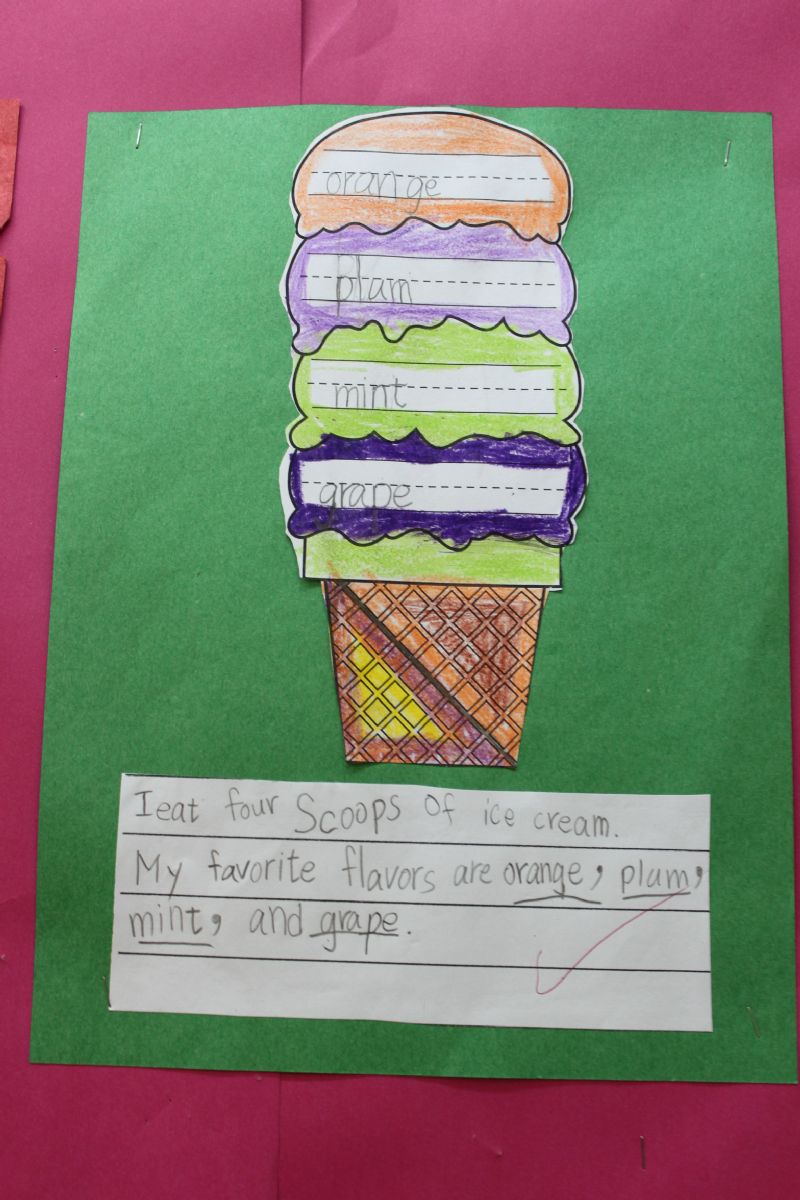 orange
plum
mint
grape
I eat four Scoops of ice cream.
My favorite flavors are orange, plum,
mint, and grape.